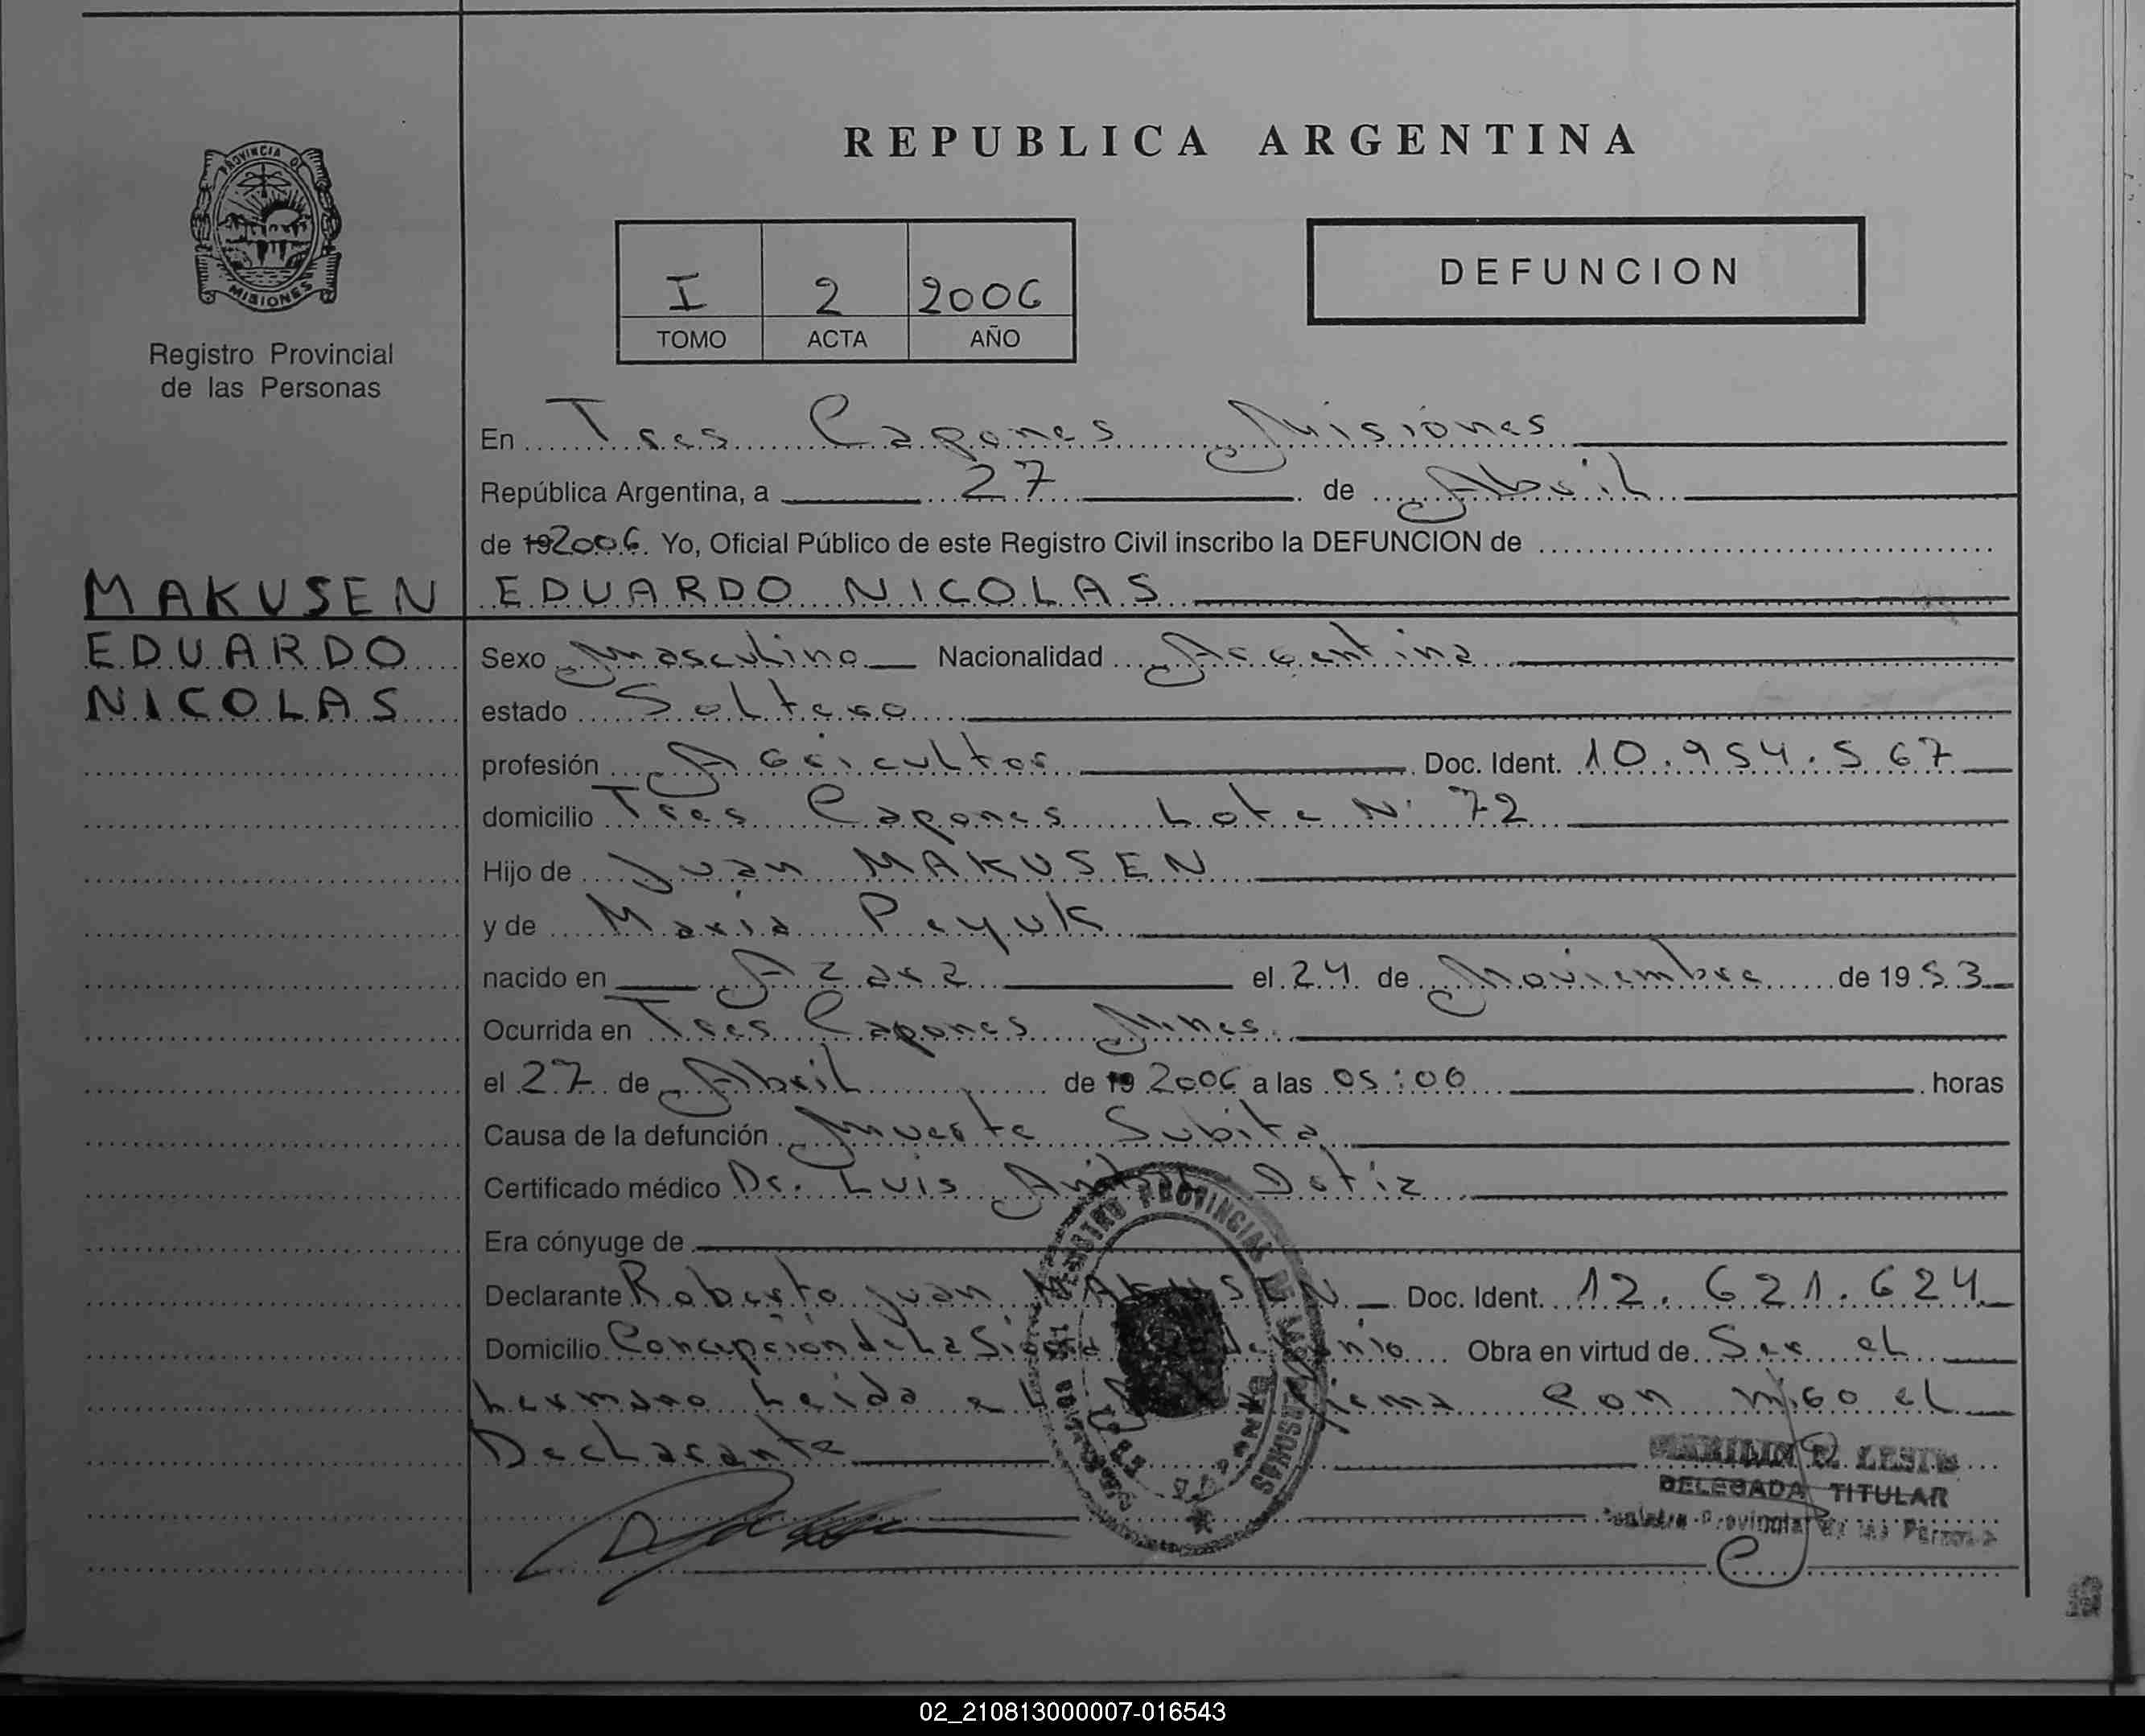 REPUBLICA ARGENTINA
PROVINCIA DE
MISIONES
Registro Provincial
de las Personas
I 2 2006
TOMO ACTA AÑO
DEFUNCION
En Tres Capones Misiones
República Argentina, a 27 de Abril
de 192006. Yo, Oficial Público de este Registro Civil inscribo la DEFUNCION de
MAKUSEN EDUARDO NICOLAS
EDUARDO
NICOLAS
Sexo Masculino Nacionalidad Argentina
estado Soltero
profesión Agricultor Doc. Ident. 10.954.567
domicilio Tres Capones Lote Nº 72
Hijo de Juan MAKUSEN
y de Maria Peyuk
nacido en Azara el 24 de Noviembre de 1953
Ocurrida en Tres Capones Mnes.
el 27 de Abril de 19 2006 a las 05:00 horas
Causa de la defunción Muerte Subita
Certificado médico Dr. Luis Ortiz
Era cónyuge de
Declarante Roberto Juan MAKUSEN Doc. Ident. 12.621.624
Domicilio Concepción de La Sierra Obra en virtud de Ser el
hermano Leida el con migo el
Declarante
REGISTRO PROVINCIAL DE LAS PERSONAS
DELEGADA TITULAR
Registro Provincial de las Personas
02_210813000007-016543